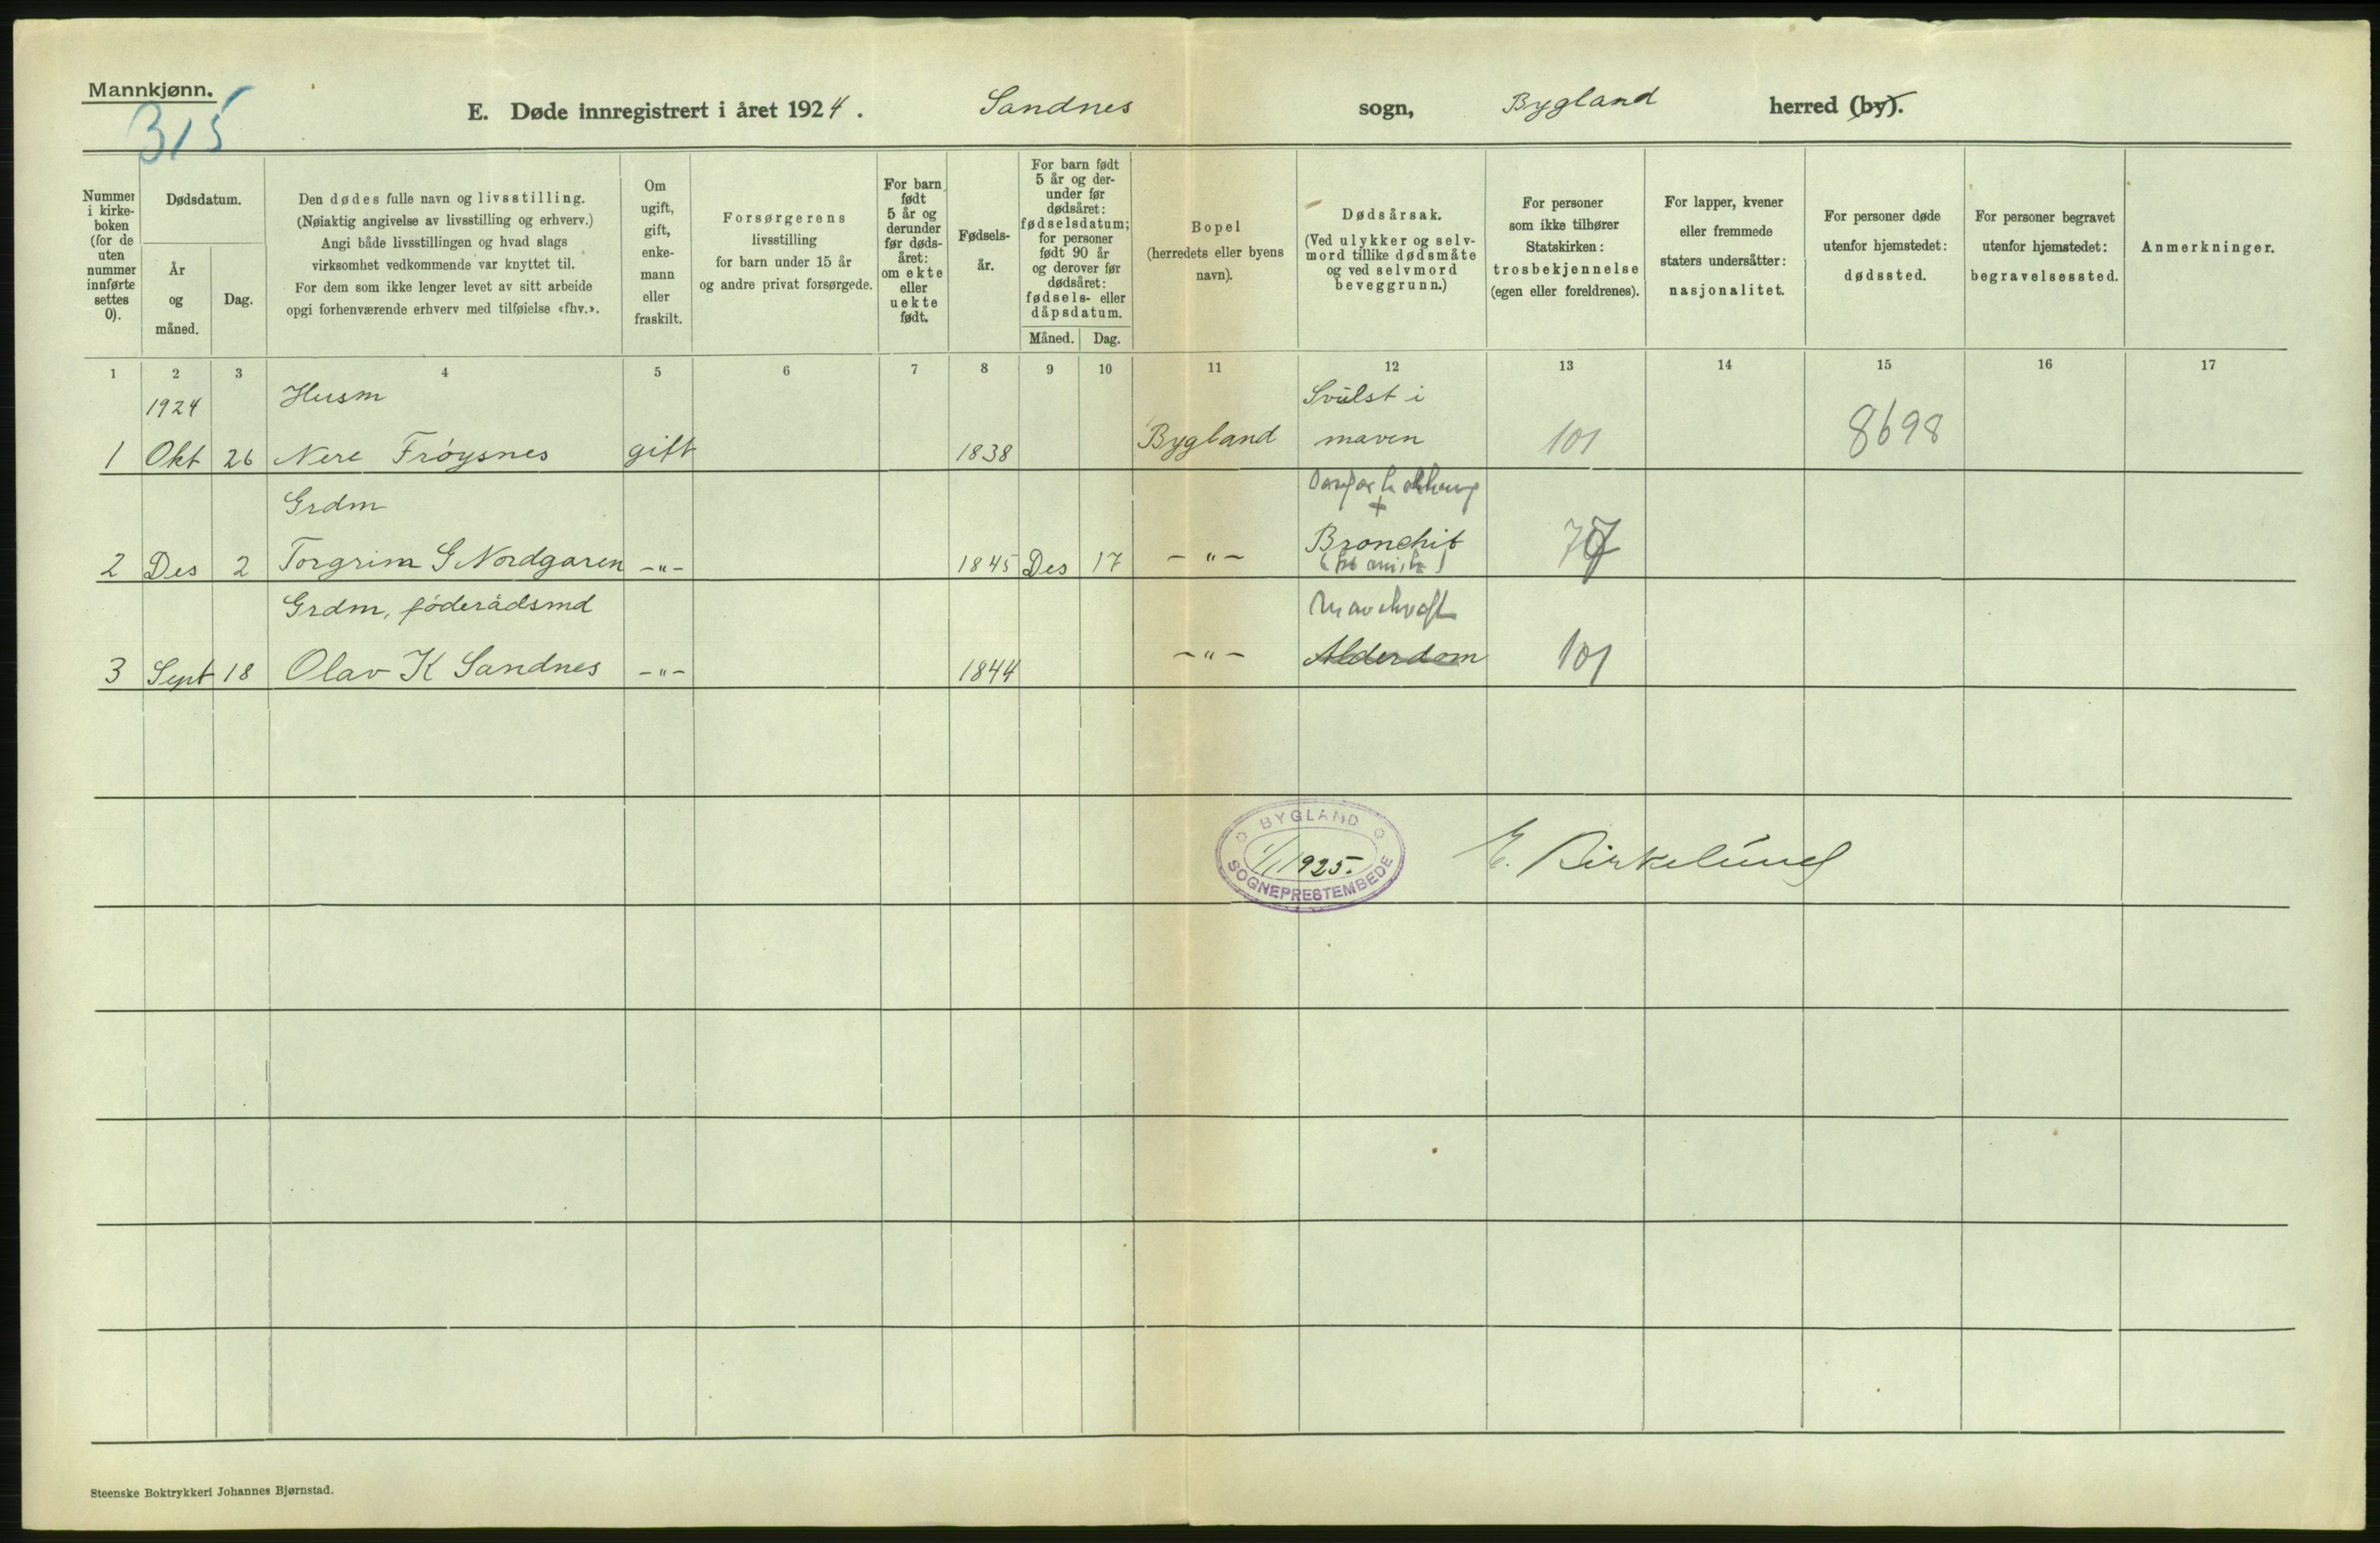 Mannkjønn.
315
E. Døde innregistrert i året 1924. Sandnes sogn, Bygland herred (by).
Nummer i kirke- boken (for de uten nummer innførte settes 0).
Dødsdatum.
År og måned.
Dag.
Den dødes fulle navn og livsstilling.
(Nøiaktig angivelse av livsstilling og erhverv.)
Angi både livsstillingen og hvad slags
virksomhet vedkommende var knyttet til.
For dem som ikke lenger levet av sitt arbeide
opgi forhenværende erhverv med tilføielse «fhv.».
Om ugift, gift, enke- mann eller fraskilt.
Forsørgerens
livsstilling
for barn under 15 år
og andre privat forsørgede.
For barn født 5 år og derunder før døds- året: om ekte eller uekte født.
Fødsels- år.
For barn født 5 år og der- under før dødsåret: fødselsdatum; for personer født 90 år og derover før dødsåret: fødsels- eller dåpsdatum.
Måned. Dag.
Bopel
(herredets eller byens
navn).
Dødsårsak.
(Ved ulykker og selv-
mord tillike dødsmåte
og ved selvmord
beveggrunn.)
For personer
som ikke tilhører
Statskirken:
trosbekjennelse
(egen eller foreldrenes).
For lapper, kvener
eller fremmede
staters undersåtter:
nasjonalitet.
For personer døde
utenfor hjemstedet:
dødssted.
For personer begravet
utenfor hjemstedet:
begravelsessted.
Anmerkninger.
1 2 3 4 5 6 7 8 9 10 11 12 13 14 15 16 17
1924 Husm Svulst i
1 Okt 26 Nere Frøysnes gift 1838 Bygland maven 101 8698
Grdm
2 Des 2 Torgrim G Nordgaren -"- 1845 Des 17 -"- Bronchit
Grdm, føderådsmd Mavekræft
3 Sept 18 Olav K Sandnes -"- 1844 -"- Alderdom 101
BYGLAND
1/1 1925.
SOGNEPRESTEMBEDE
E. Birkelund
Steenske Boktrykkeri Johannes Bjørnstad.